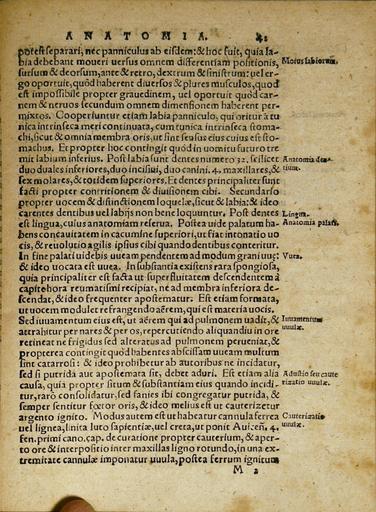 ANATOMIA. 41
potest separari, nec panniculus ab eisdem: & hoc fuit, quia la-
bia debebant moueri uersus omnem differentiam positionis,
sursum & deorsum, ante & retro, dextrum & sinistrum: uel er-
go oportuit, quòd haberent diuersos & plures musculos, quod
est impossibile propter grauedinem, uel oportuit quòd car-
nem & neruos secundum omnem dimensionem haberent per-
mixtos. Cooperiuntur etiam labia panniculo, qui oritur à tu
nica intrinseca meri continuata, cum tunica intrinseca stoma-
chi, sicut & omnia membra oris, ut sint sensus eius cuius est sto-
machus. Et propter hoc contingit quòd in uomitu futuro tre
mit labium inferius. Post labia sunt dentes numero 32. scilicet
duo duales inferiores, duo incisiui, duo canini. 4. maxillares, &
sex molares, & totidem superiores. Et dentes principaliter sunt
facti propter contritionem & diuisionem cibi. Secundariò
propter uocem & distinctionem loquelæ, sicut & labia: & ideo
carentes dentibus uel labijs non bene loquuntur. Post dentes
est lingua, cuius anatomiam referua. Postea uide palatum ha-
bens concauitatem in cacumine superiori, ut fiat intonatio uo
cis, & reuolutio agilis ipsius cibi quando dentibus conteritur.
In fine palati uidebis uueam pendentem ad modum grani uuę:
& ideo uocata est uuea. In substantia existens rara spongiosa,
quia principaliter est facta ut superfluitatem descendentem à
capite hora reumatismi recipiat, ne ad membra inferiora de-
scendat, & ideo frequenter apostematur. Est etiam formata,
ut uocem modulet refrangendo aërem, qui est materia uocis.
Sed iuuamentum eius est, ut aërem qui ad pulmonem uadit, &
attrahitur per nares & per os, repercutiendo aliquandiu in ore
retineat ne frigidus sed alteratus ad pulmonem perueniat, &
propterea contingit quòd habentes abscissam uueam multum
sint catarrosi: & ideo prohibetur ab autoribus ne incidatur,
sed si putrida aut aposemata sit, debet aduri. Est etiam alia
causa, quia propter situm & substantiam eius quando incidi-
tur, rarò consolidatur, sed sanies ibi congregatur putrida, &
semper sentitur fœtor oris, & ideo melius est ut cauterizetur
argento ignito. Modus autem est ut habeatur cannula ferrea
uel lignea, linita luto sapientiæ, uel creta, ut ponit Aui: cẽn, 4.
fen. primi cano. cap. de curatione propter cauterium, & aper-
to ore & interpositio inter maxillas ligno rotundo, in una ex-
tremitate cannulæ imponatur uuula, postea ferrum ignitum
M 2
Motus labiorum.
Anatomia den-
tium.
Lingua.
Anatomia palati.
Vuea.
Iuuamentum
uuulæ.
Adustio seu caute
rizatio uuulæ.
Cauterizatio
uuulæ.